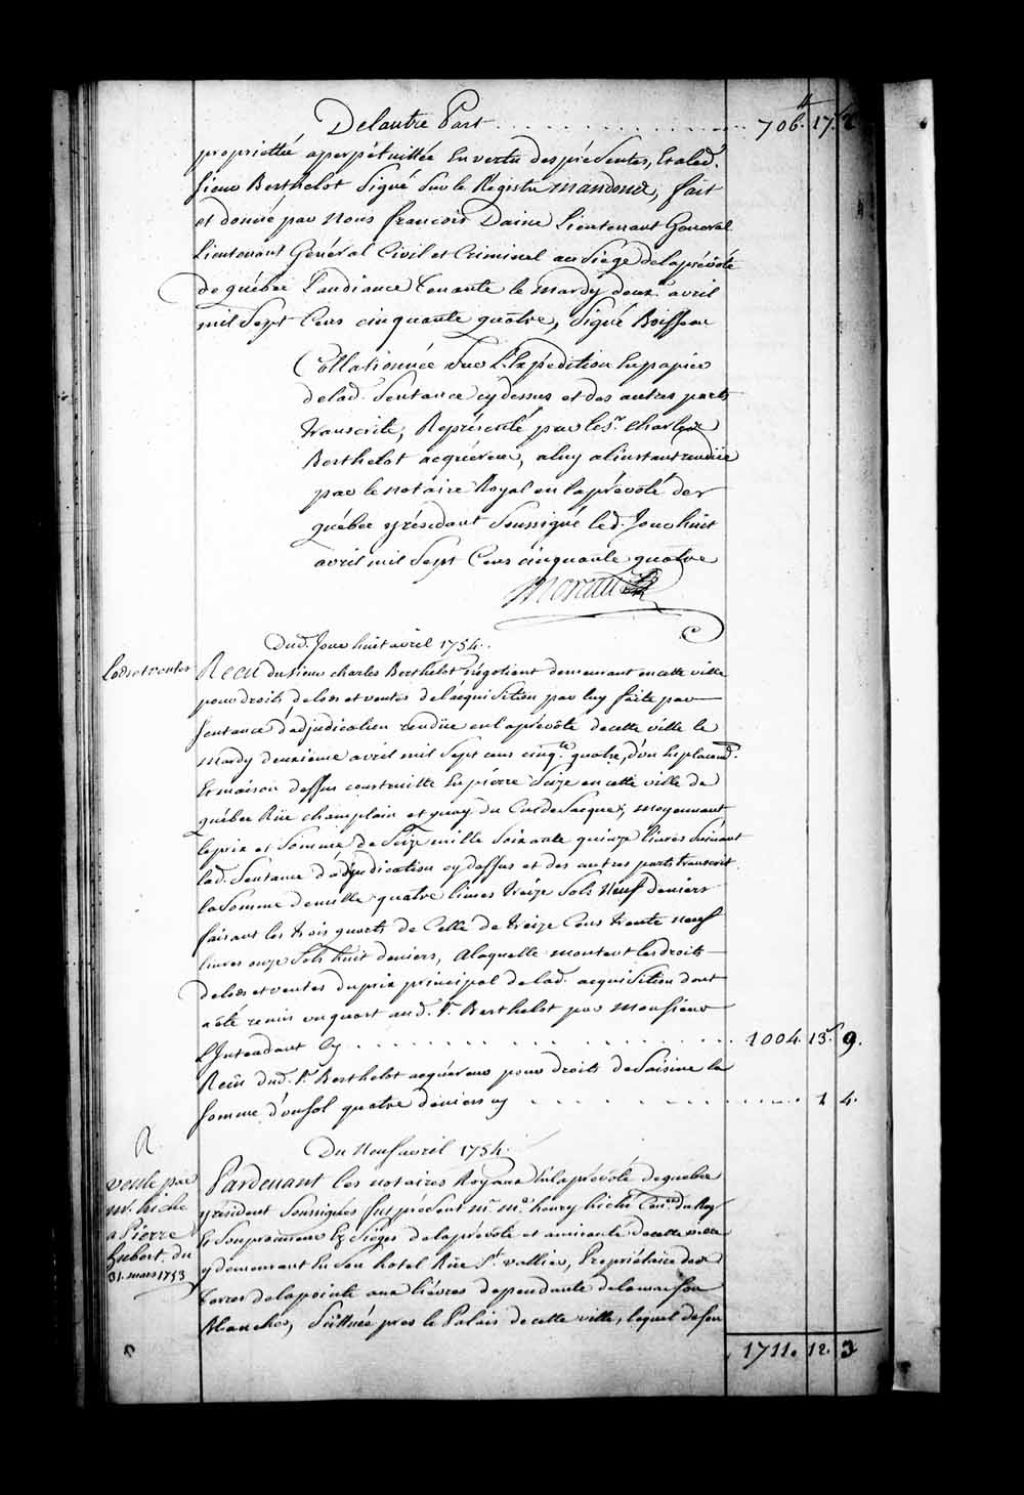 De l'autre Part . . . . . . . . . 706.ll 17.s
proprietté apperpétuittée En vertu des présentes, Et a led.
sieur Berthelot signé sur le Registre mandons, fait
et donné par Nous francois Daine Lieutenant General
Lieutenant Général Civil et Criminel au siége de la prévôté
de québec L'audiance Tenante le mardy deux avril
mil sept Cens cinquante quatre, signé Boisseau
Collationnée sur L'Expédition En papier
de lad. Sentance cy dessus et des autres parts
transcrite, Représenté par le Sr. Charles
Berthelot acquéreur, a luy a l'instant rendüe
par le notaire Royal en la prévôté de
québec y résidant Soussigné led. Jour huit
avril mil sept Cens cinquante quatre
Du d. Jour huit avril 1754.
Lods et ventes
Reçu du sieur charles Berthelot négotiant demeurant en cette ville
pour droits de lods et ventes de l'acquisition par luy faite par
sentance d'adjudication rendüe en la prévôté de cette ville le
mardy deuxieme avril mil sept cens cinqte. quatre, d'un Emplacemt.
Et maison dessus construitte En pierre Size en cette ville de
québec Rüe champlain et quay du Cul de Sacque; moyennant
le prix et somme de Seize mille soixante quinze livres suivant
lad. Sentance d'adjudication cy dessus et des autres parts transcrit
la somme de mille quatre livres treize sols Neuf deniers
faisant les trois quarts de Celle de treize Cens trente neuf
livres onze sols huit deniers, a laquelle montent les droits
de lods et ventes du prix principal de lad. acquisition dont
a été remis un quart aud. Sr. Berthelot par monsieur
L'Intendant Cy . . . . . . . . . 1004. 13.s 9.
Reçu dud. Sr. Berthelot acquéreur pour droits de Saisine la
somme d'un sol quatre deniers cy . . . . . . . . . 1 4.
Du Neuf avril 1754.
vente par
mr. hiché
a Pierre
hubert, du
31. mars 1753
Pardevant les notaires Royaux En la prévôté de québec
y résident Soussignés fut présent Mr. Me. henry hiché Conser. du Roy
Et son procureur Es Siéges de la prévôté et amirauté de cette ville
y demeurant En son hotel Rüe St. vallier, Propriétaire des
terres de la pointe aux liévres dependante de la maison
Blanche, Sittuée pres le Palais de cette ville, lequel de son
1711. 12. 3